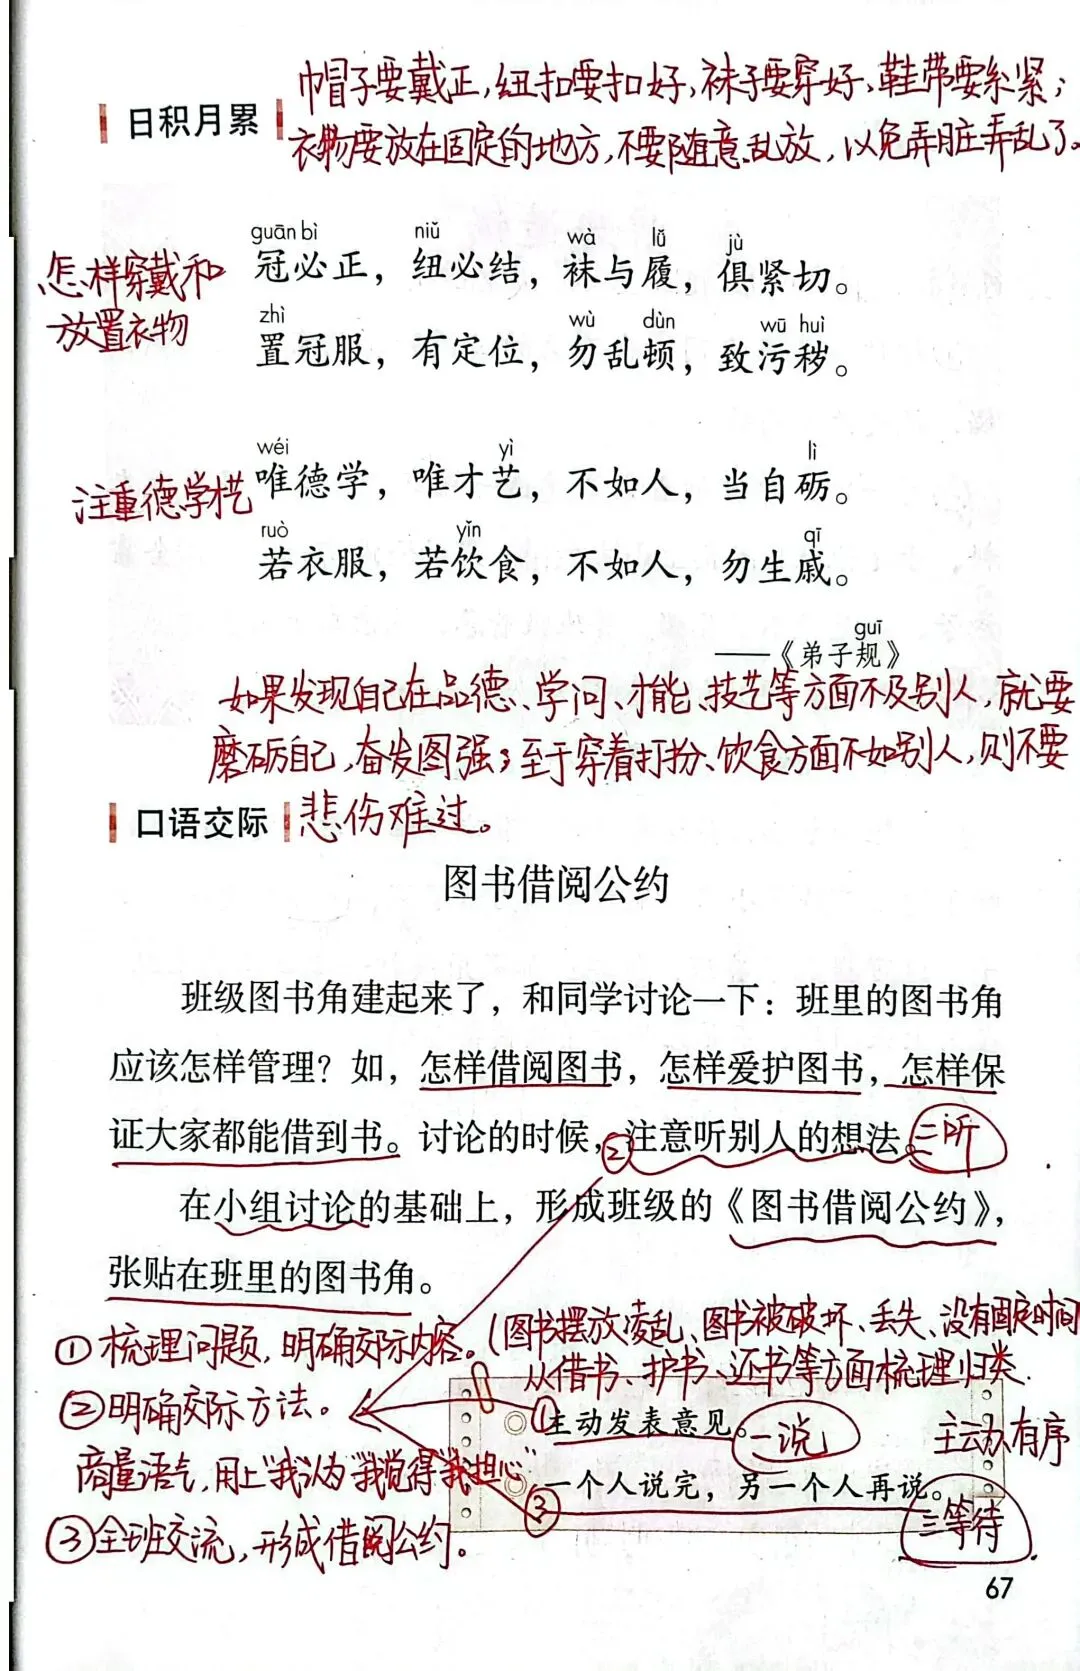 帽子要戴正,纽扣要扣好,袜子要穿好,鞋带要系紧;
日积月累
衣物要放在固定的地方,不要随意乱放,以免弄脏弄乱了。
guān bì niǔ wà lǚ jù
怎样穿戴和
冠必正，纽必结，袜与履，俱紧切。
放置衣物
zhì wù dùn wū huì
置冠服，有定位，勿乱顿，致污秽。
wéi yì lì
注重德学才艺
唯德学，唯才艺，不如人，当自砺。
ruò yǐn qī
若衣服，若饮食，不如人，勿生戚。
guī
——《弟子规》
如果发现自己在品德、学问、才能、技艺等方面不及别人,就要
磨砺自己,奋发图强;至于穿着打扮、饮食方面不如别人,则不要
口语交际
悲伤难过。
图书借阅公约
班级图书角建起来了，和同学讨论一下：班里的图书角
应该怎样管理？如，怎样借阅图书，怎样爱护图书，怎样保
证大家都能借到书。讨论的时候，②注意听别人的想法。二听
在小组讨论的基础上，形成班级的《图书借阅公约》，
张贴在班里的图书角。
①梳理问题,明确交际内容。(图书摆放凌乱、图书被破坏、丢失、没有固定时间
从借书、护书、还书等方面梳理归类.
②明确交际方法。
①主动发表意见。一说
主动有序
商量语气,用上"我认为"我觉得"我担心"
③一个人说完，另一个人再说。
三等待
③全班交流,形成借阅公约。
67